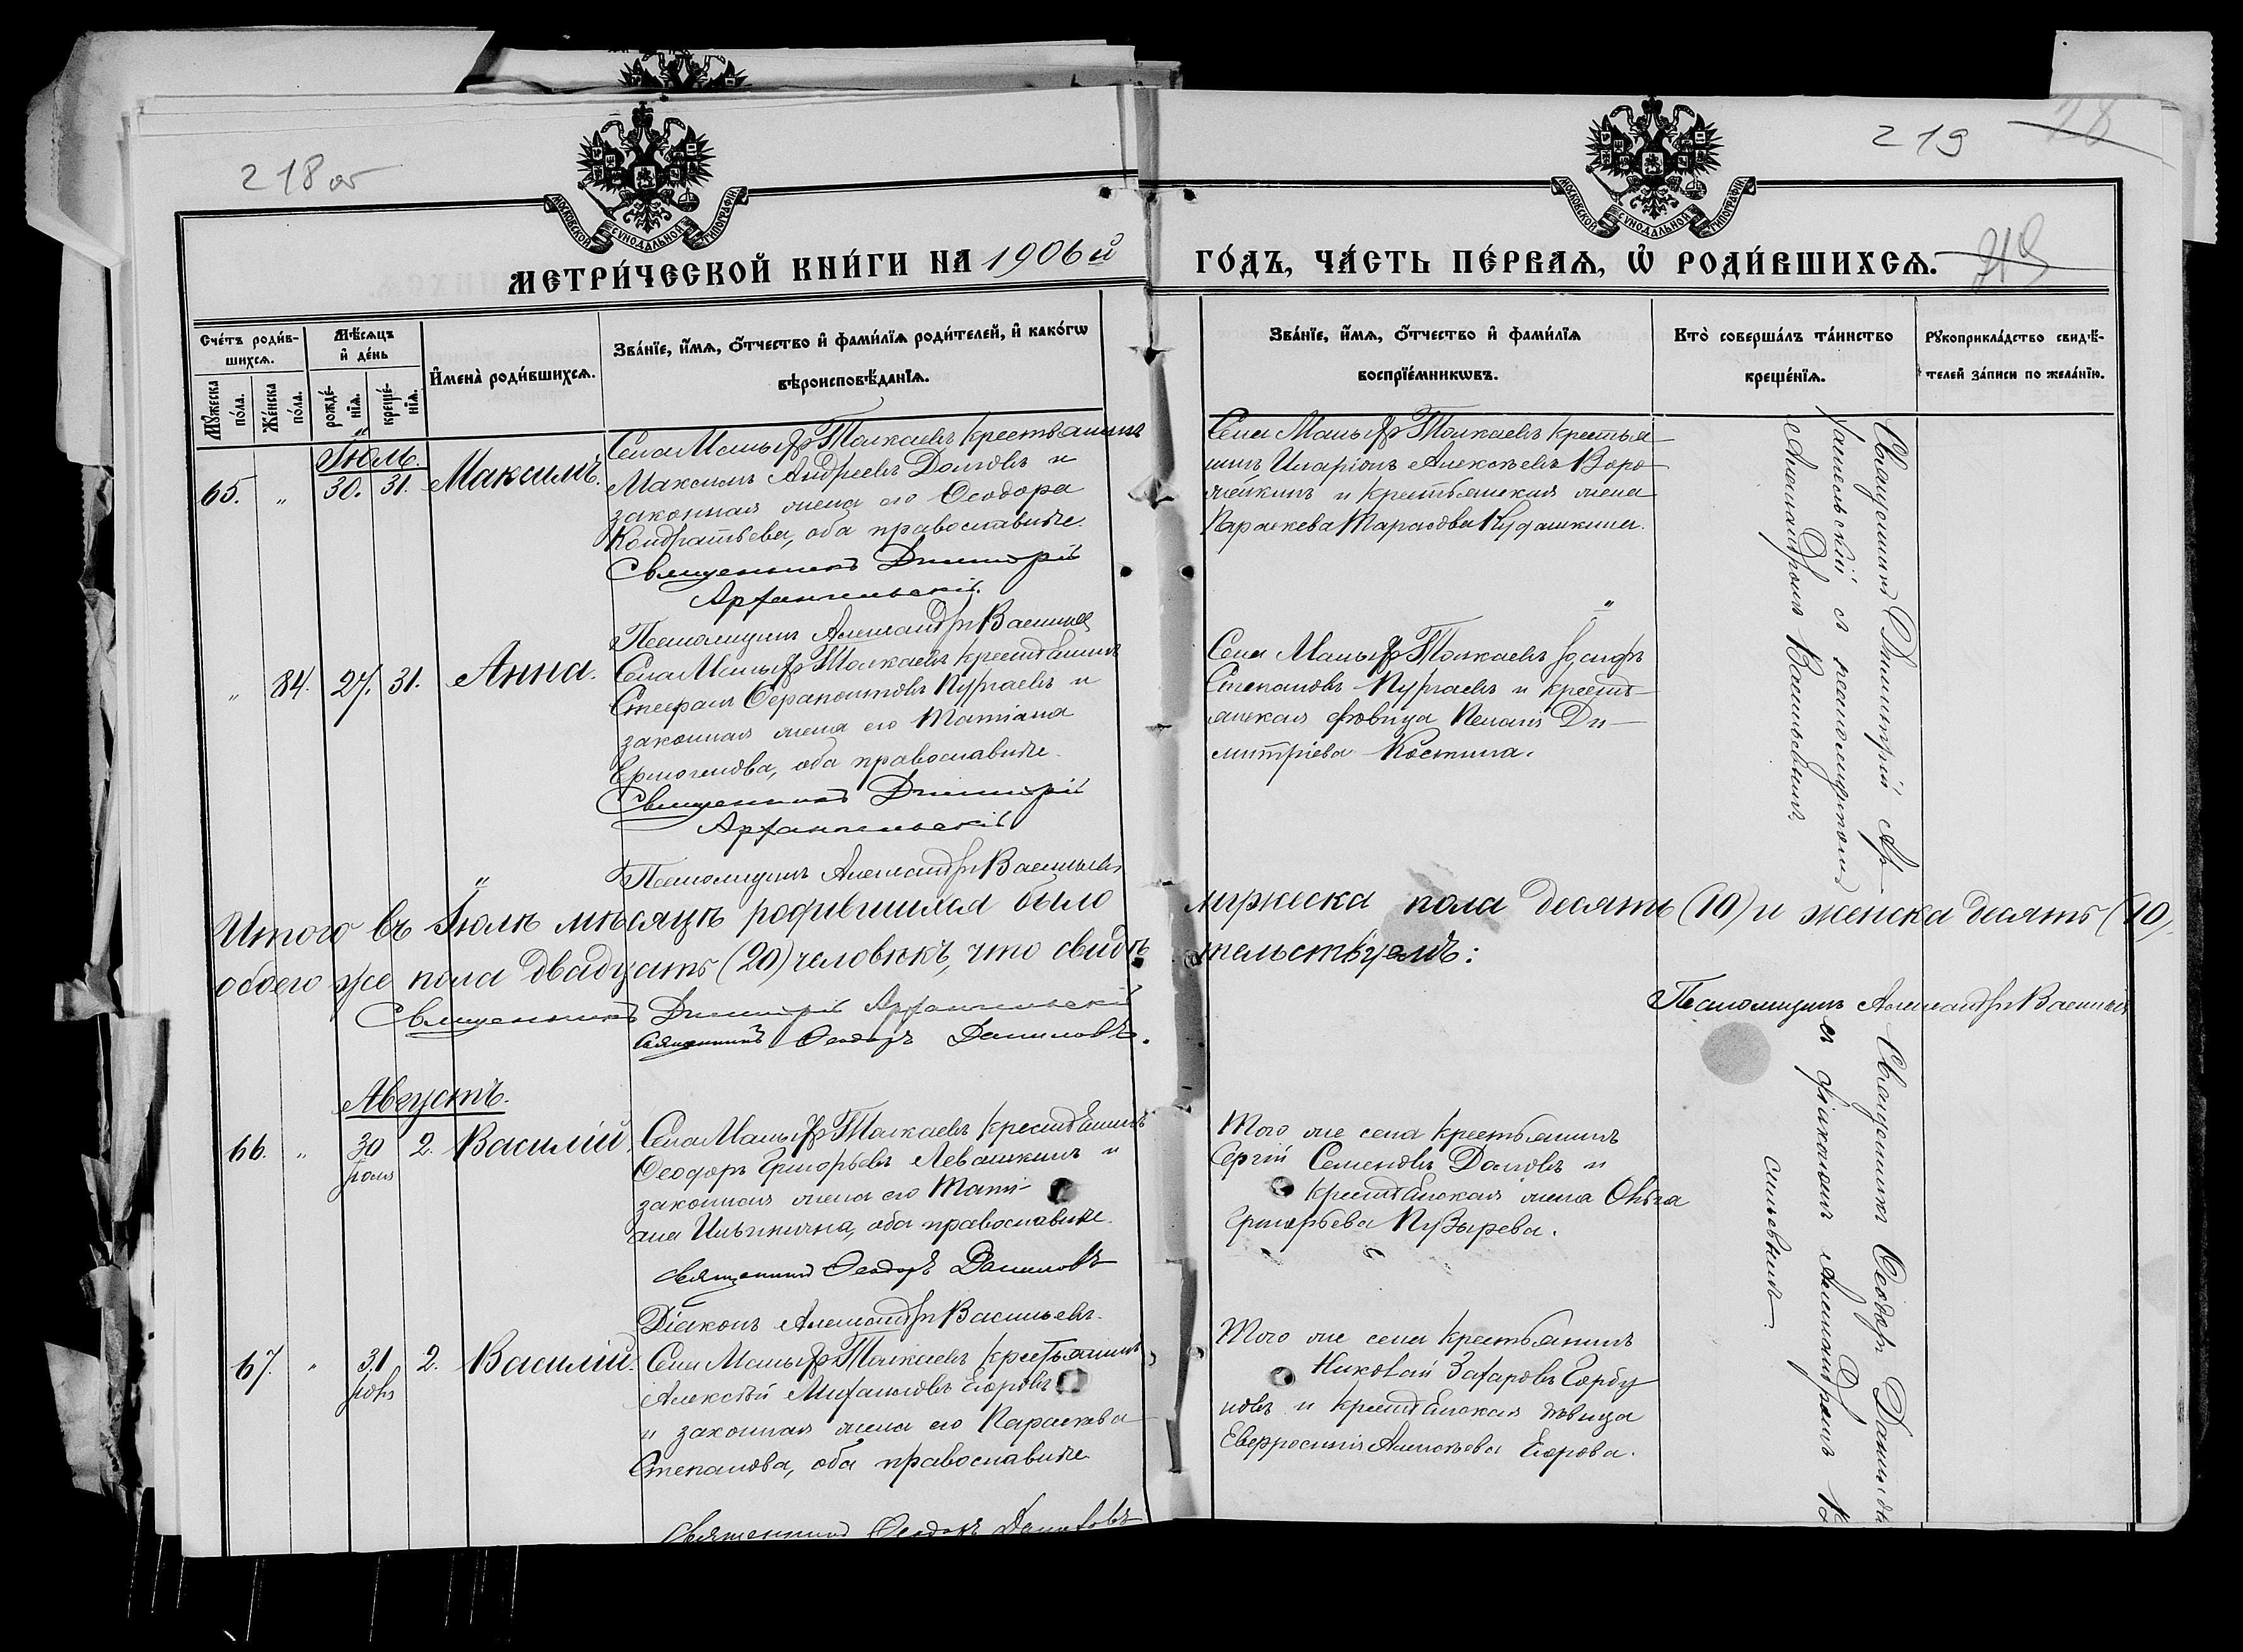 218 об
219
28
219
МОСКОВСКОЙ СѴНОДАЛЬНОЙ ТИПОГРАФІИ
МОСКОВСКОЙ СѴНОДАЛЬНОЙ ТИПОГРАФІИ
МЕТРИ́ЧЕСКОЙ КНИ́ГИ НА 1906й ГО́ДЪ, ЧА́СТЬ ПЕ́РВАѦ, Ѡ҆ РОДИ́ВШИХСѦ.
Сче́тъ роди́в-
шихсѧ.
Мѹжеска по́ла.
Же́нска по́ла.
Мѣ́сѧцъ
и҆ де́нь
рожде́-
нїѧ.
креще́-
нїѧ.
И҆мена̀ роди́вшихсѧ.
Зва́нїе, и҆́мѧ, ѻ҆́тчество и҆ фами́лїѧ роди́телей, и҆ како́гѡ
вѣроисповѣ́данїѧ.
Зва́нїе, и҆́мѧ, ѻ҆́тчество и҆ фами́лїѧ
воспрїе́мникѡвъ.
Кто̀ соверша́лъ та́инство
креще́нїѧ.
Рѹкоприкла́дство свидѣ́-
телей за́писи по жела́нїю.
Іюль.
65. " 30. 31. Максимъ.
Села Малыхъ Толкаевъ крестьянинъ
Максимъ Андреевъ Долговъ и
законная жена его Ѳеодора
Кондратьева, оба православные.
Священникъ Димитрій
Архангельскій.
Псаломщикъ Александръ Васильев
Села Малыхъ Толкаевъ крестья
нинъ Иларіонъ Алексѣевъ Воро
жейкинъ и крестьянская жена
Параскева Тарасова Кудашкина.
Священникъ Димитрій Ар-
хангельскій съ псаломщикомъ
Александромъ Васильевымъ
" 84. 27. 31. Анна.
Села Малыхъ Толкаевъ крестьянинъ
Стефанъ Серапіоновъ Пургаевъ и
законная жена его Татіана
Ермогенова, оба православные.
Священникъ Димитрій
Архангельскій
Псаломщикъ Александръ Васильевъ
Села Малыхъ Толкаевъ Іосифъ
Степановъ Пургаевъ и кресть-
янская дѣвица Пелагія Ди-
митріева Костина.
Итого въ Іюлѣ мѣсяцѣ родившихся было мужеска пола десять (10) и женска десять (10),
обоего же пола двадцать (20) человѣкъ, что свидѣтельствуемъ:
Священникъ Димитрій Архангельскій
Священникъ Ѳеодоръ Даниловъ.
Псаломщикъ Александръ Васильев
Августъ.
66. " 30 іюля 2. Василій.
Села Малыхъ Толкаевъ крестьянинъ
Ѳеодоръ Григорьевъ Левашкинъ и
законная жена его Тати-
ана Ильинична, оба православные.
Священникъ Ѳеодоръ Даниловъ
Діаконъ Александръ Васильевъ.
Того же села крестьянинъ
Сергій Семеновъ Долговъ и
крестьянская жена Ольга
Григорьева Пузырева.
Священникъ Ѳеодоръ Данилов
съ діакономъ Александромъ Ва
сильевымъ.
67. " 31 2. Василій.
Села Малыхъ Толкаевъ крестьянинъ
Алексѣй Михаиловъ Егоровъ
и законная жена его Параскева
Степанова, оба православные
Священникъ Ѳеодоръ Даниловъ
Того же села крестьянинъ
Николай Захаровъ Горбу
новъ и крестьянская дѣвица
Евфросинія Алексѣева Егорова.